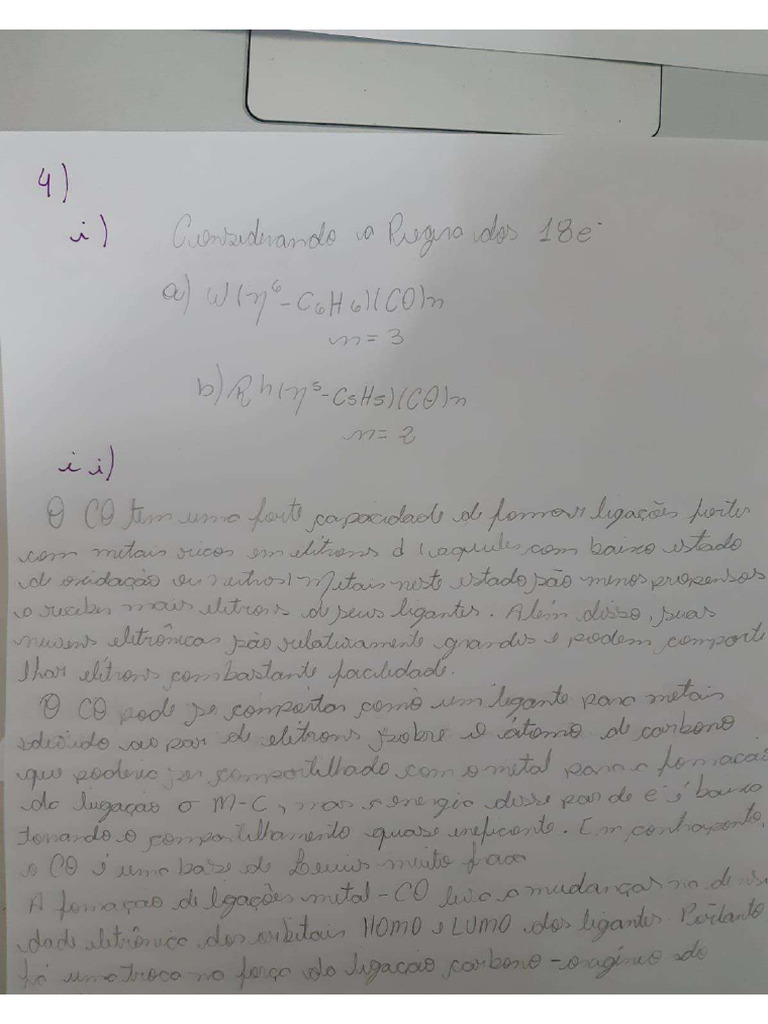 4)
i) Considerando a Regra dos 18e-
a) W(η⁶-C6H6)(CO)n
n = 3
b) Rh(η⁵-C5H5)(CO)n
n = 2
ii)
O CO tem uma forte capacidade de formar ligações fortes
com metais ricos em elétrons d (aqueles com baixo estado
de oxidação ou neutros) Metais neste estado são menos propensos
a receber mais elétrons de seus ligantes. Além disso, suas
nuvens eletrônicas são relativamente grandes e podem comparti
lhar elétrons com bastante facilidade.
O CO pode se comportar como um ligante para metais
devido ao par de elétrons sobre o átomo de carbono
que poderia ser compartilhado com o metal para a formação
da ligação σ M-C, mas a energia desse par de e- é baixa
tornando o compartilhamento quase ineficiente. Em contraponto,
o CO é uma base de Lewis muito fraca
A formação de ligações metal-CO leva a mudanças na densi
dade eletrônica dos orbitais HOMO e LUMO dos ligantes. Portanto
há uma troca na força da ligação carbono-oxigênio